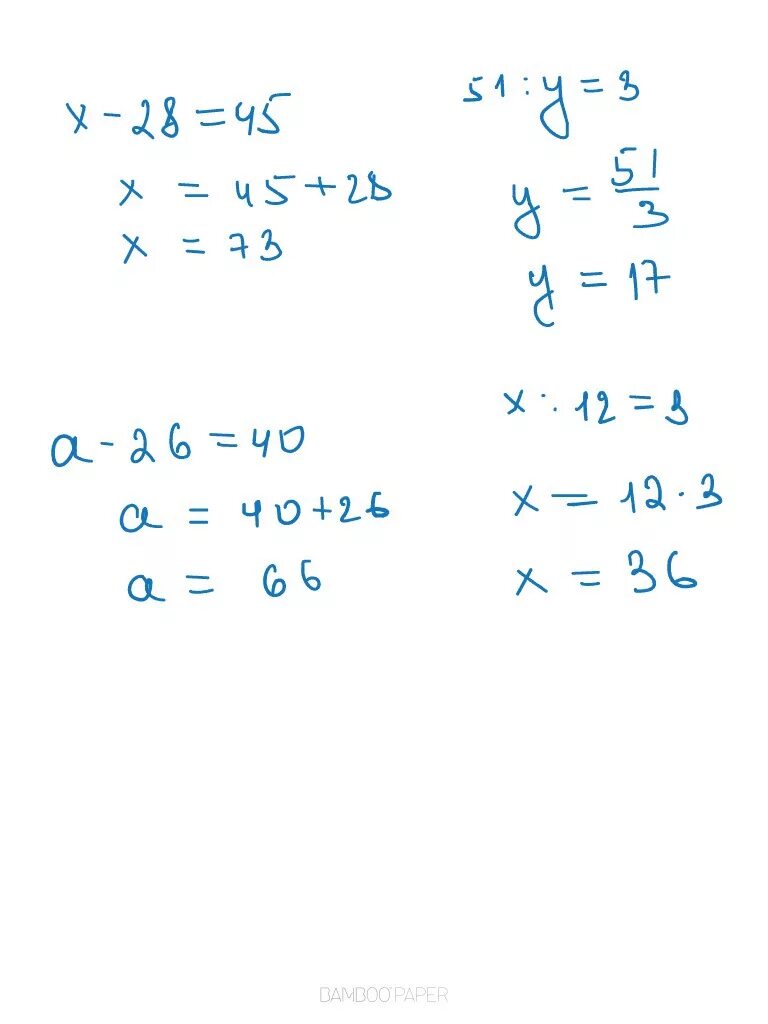 x - 28 = 45
x = 45 + 28
x = 73
51 : y = 3
y = 51/3
y = 17
a - 26 = 40
a = 40 + 26
a = 66
x : 12 = 3
x = 12 · 3
x = 36
BAMBOO PAPER